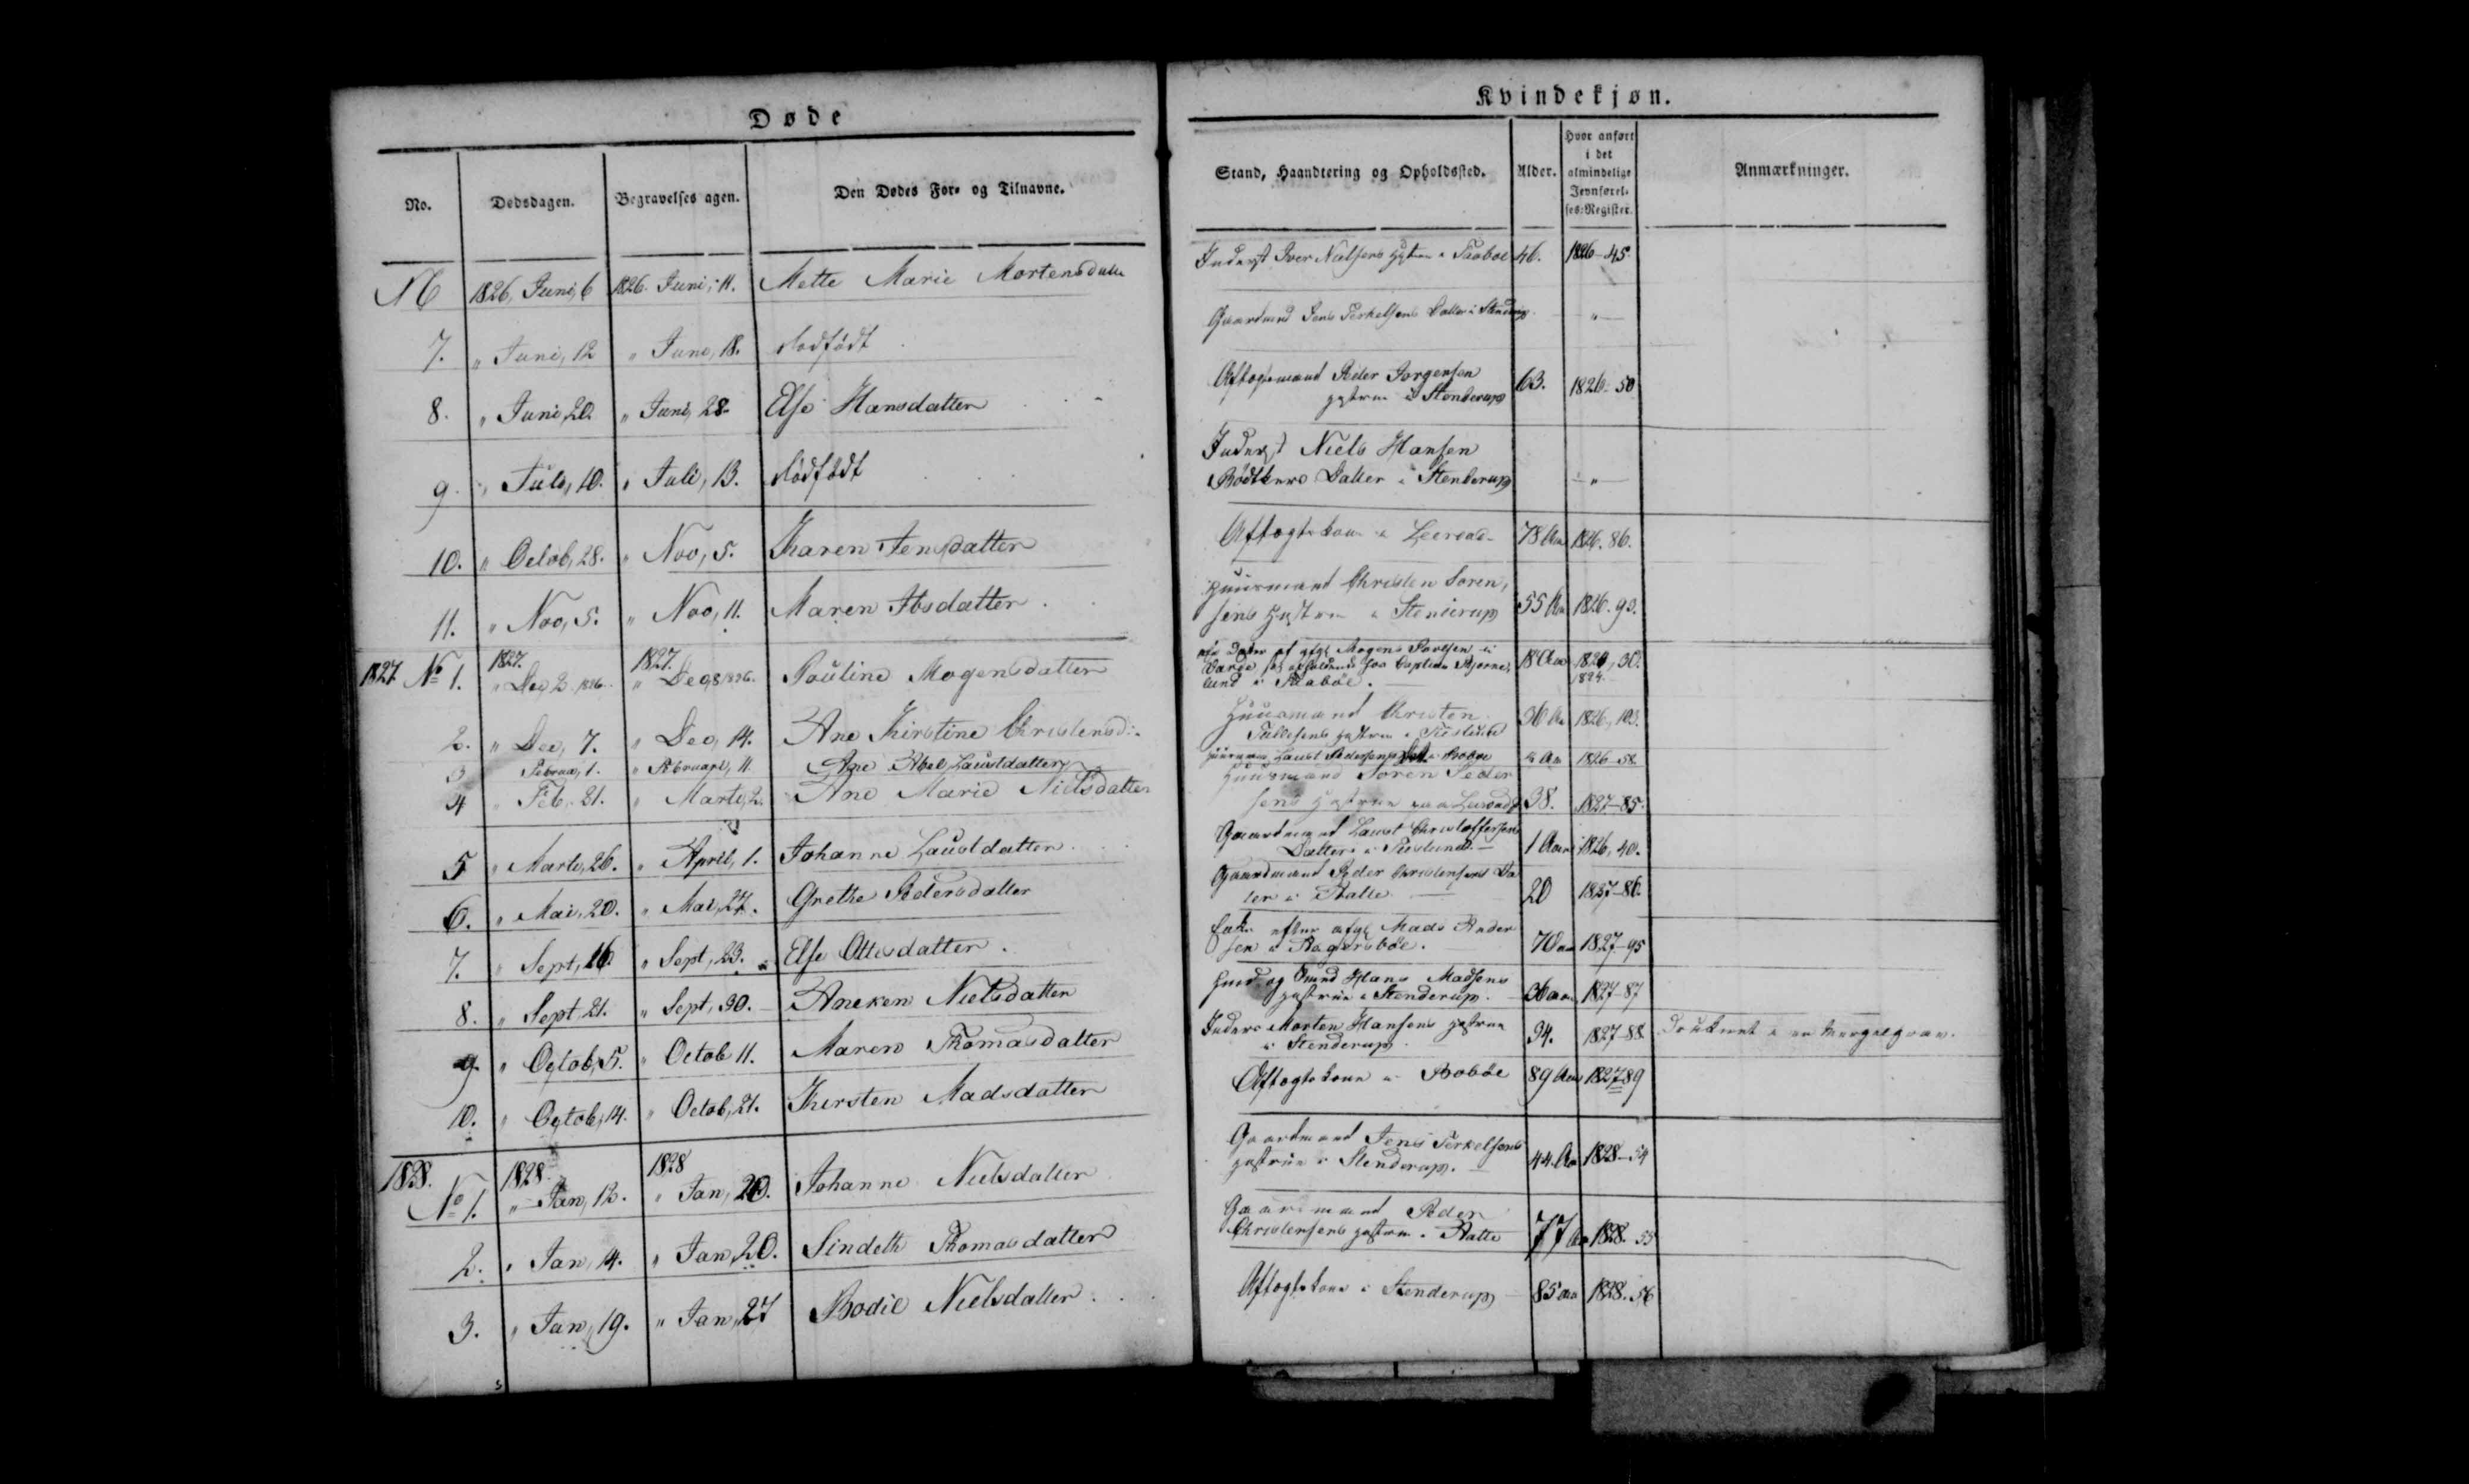 Døde
No.
Dødsdagen.
Begravelses agen.
Den Dødes For- og Tilnavne.
N 6 1826, Juni, 6 1826. Juni, 11. Mette Marie Mortensdatter
7. " Juni, 12 " Juni, 18. dødfødt
8. " Juni, 20. " Juni, 28. Else Hansdatter
9. " Juli, 10. " Juli, 13. dødfødt
10. " Octob, 28. " Nov, 5. Karen Jensdatter
11. " Nov, 5. " Nov, 11. Maren Ibsdatter
1827 No 1. 1827. " Dec, 2. 1826. 1827. " Dec, 8 1826. Pouline Mogensdatter
2. " Dec, 7. " Dec, 14. Ane Kirstine Christensd:
3 Februar, 1. " Februari, 11 Ane Abel Laustdatter
4 " Feb. 21. " Marti, 2. Ane Marie Nielsdatter
5 " Marti, 26. " April, 1. Johanne Laustdatter
6. " Mai, 20. " Mai, 27. Grethe Pedersdatter
7. " Sept, 16. " Sept, 23. Else Ottesdatter
8. " Sept, 21. " Sept, 30. Aneken Nielsdatter
9. " Octob, 5. " Octob 11. Maren Thomasdatter
10. " Octob, 14. " Octob, 21. Kirsten Madsdatter
1828. No 1. 1828. " Jan, 12. 1828 " Jan, 20. Johanne Nielsdatter
2. " Jan, 14. " Jan, 20. Sindeth Thomasdatter
3. " Jan, 19. " Jan, 27 Bodil Nielsdatter
Kvindekjøn.
Stand, Haandtering og Opholdssted.
Alder.
Hvor anført
i det
almindelige
Jevnførel-
ses-Register.
Anmærkninger.
Inderst Iver Nielsens Hustrue i 46. 1826-45.
Gaardmand Jens Terkelsens Datter i Stenderup "
Aftægtsmand Peder Jørgensen
Hustrue i Stenderup 63. 1826-50
Inderst Niels Hansen
Bødkers Datter i Stenderup "
Aftægtskone i 78 Aar 1826. 86.
Huusmand Christen Søren,
sens Hustrue i Stenderup 55 Aar 1826. 93.
Datter af afg. Mogens i
hos Captain Bjerre,
lund i 18 Aar 1824
Huusmand Christen
Hustrue i 36 Aar 1826, 103.
Huusmand Laust Pedersens i Bobøe 1826-58.
Huusmand Søren Peder
sens Hustrue 38. 1827-85.
Gaardmand Laust Christoffersens
Datter i 1 Aar 1826, 40.
Gaardmand Peder Christensens Da
ter i Stalle 20 1827-86.
Enke efter afg. Mads Ander
sen i Bøgesbøe. 70 aar 1827-95
Huus og Smed Hans Madsens
Hustrue i Stenderup. 36 aar 1827-87
Inders Morten Hansens Hustrue
i Stenderup. 34. 1827-88 Druknet i en Mergelgrav.
Aftægtskone i Bobøe 89 Aar 1827-89
Gaardmand Jens Terkelsens
Hustrue i Stenderup. 44. Aar 1828-54
Gaardmand Peder
Christensens Hustrue i Stalle 77 Aar 1828. 55
Aftægtskone i Stenderup 85 aar 1828. 56